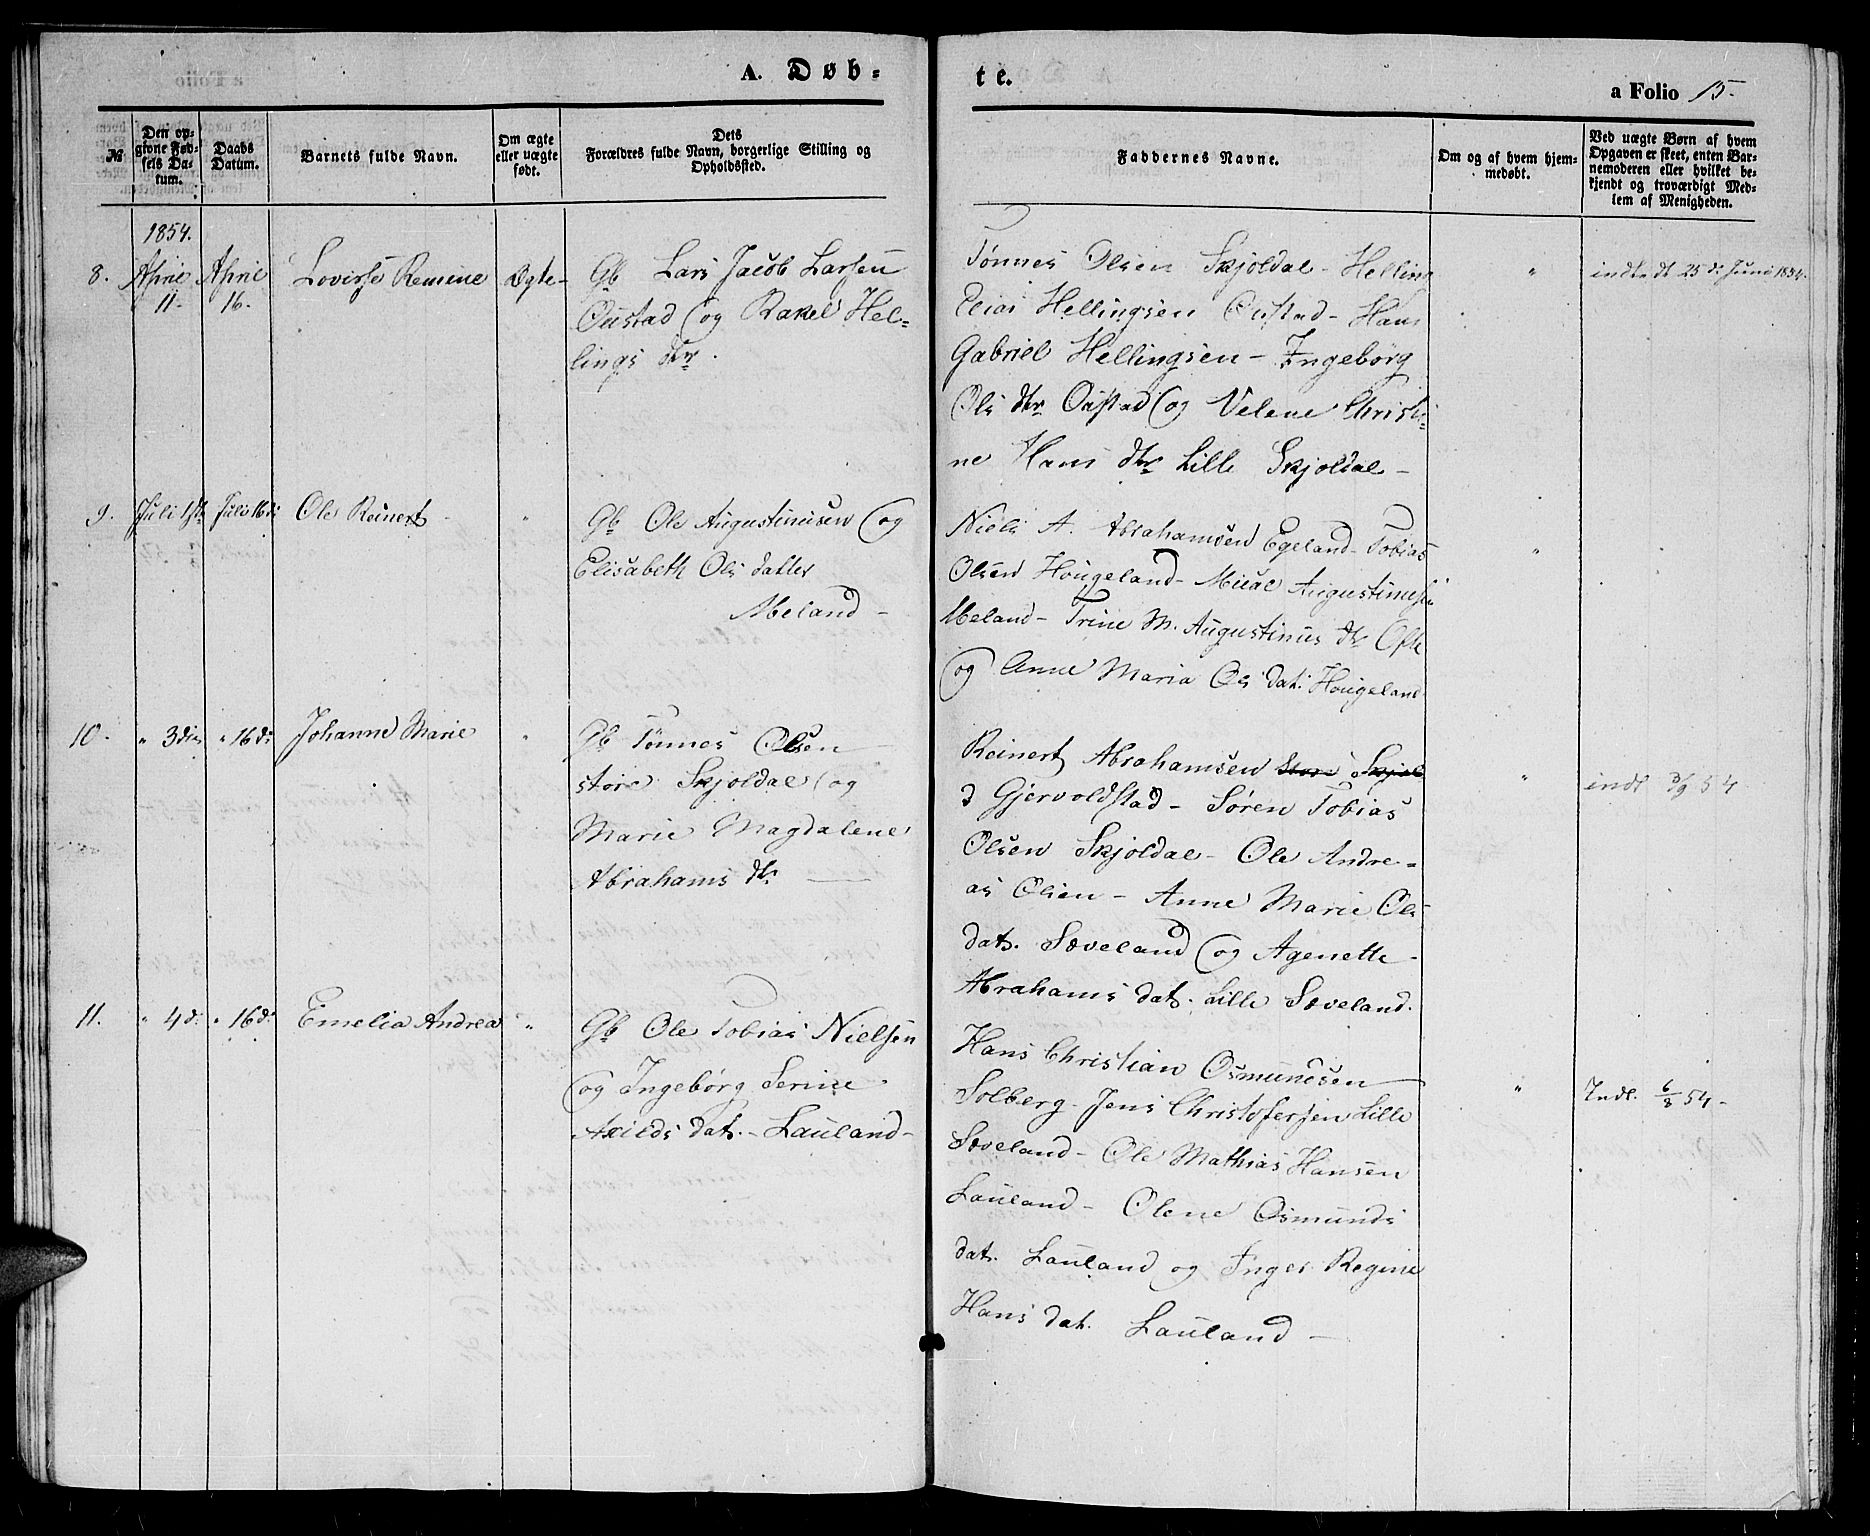 A. Døb-
te.
a Folio 15.
№
Den op-
givne Fød-
sels Da-
tum.
Daabs
Datum.
Barnets fulde Navn.
Om ægte
eller uægte
født.
Dets
Forældres fulde Navn, borgerlige Stilling og
Opholdssted.
Faddernes Navne.
Om og af hvem hjem-
medøbt.
Ved uægte Børn af hvem
Opgaven er skeet, enten Bar-
nemoderen eller hvilket be-
kjendt og troværdigt Med-
lem af Menigheden.
1854.
8.
April
11-
April
16-
Lovisse Remene
Ægte-
Gb Lars Jacob Larsen
Oustad og Rakel Hel-
lings dtr.
Tønnes Olsen Skjoldal - Helling
Elias Hellingsen Oustad - Hans
Gabriel Hellingsen - Ingebørg
Ols dtr Oustad og Velene Christi-
ne Hans dtr Lille Skjoldal -
"
indtndt 25 d. Juni 1854.
9.
Juli 1ste
Juli 16 d:
Ole Reinert -
"
Gb Ole Augustinusen og
Elisabeth Ols datter
Abeland -
Niels A. Abrahamsen Egeland - Tobias
Olsen Hougeland - Augustinusen
Abeland - Trine M. Augustinus dtr Ofte
og Anne Maria Ols dat. Hougeland
"
10.
" 3 die
" 16 d:
Johanne Marie
"
Gb Tønnes Olsen
store Skjoldal og
Marie Magdalene
Abrahams dtr
Reinert Abrahamsen Store Skjol
d Gjervoldstad - Søren Tobias
Olsen Skjoldal - Ole Andre-
as Olsen - Anne Marie Ols
dat. Sæveland og Agenette
Abrahams dat. Lille Sæveland.
"
indt 3/9 54
11.
" 4 d:
" 16 d:
Emelia Andrea
"
Gb Ole Tobias Nielsen
og Ingebørg Serine
Axilds dat. - Lauland -
Hans Christian Osmundsen
Solberg - Jens Christofersen Lille
Sæveland - Ole Mathias Hansen
Lauland - Olene Osmunds
dat. Lauland og Inger Regine
Hans dat. Lauland -
"
Indl. 6/8 54 -